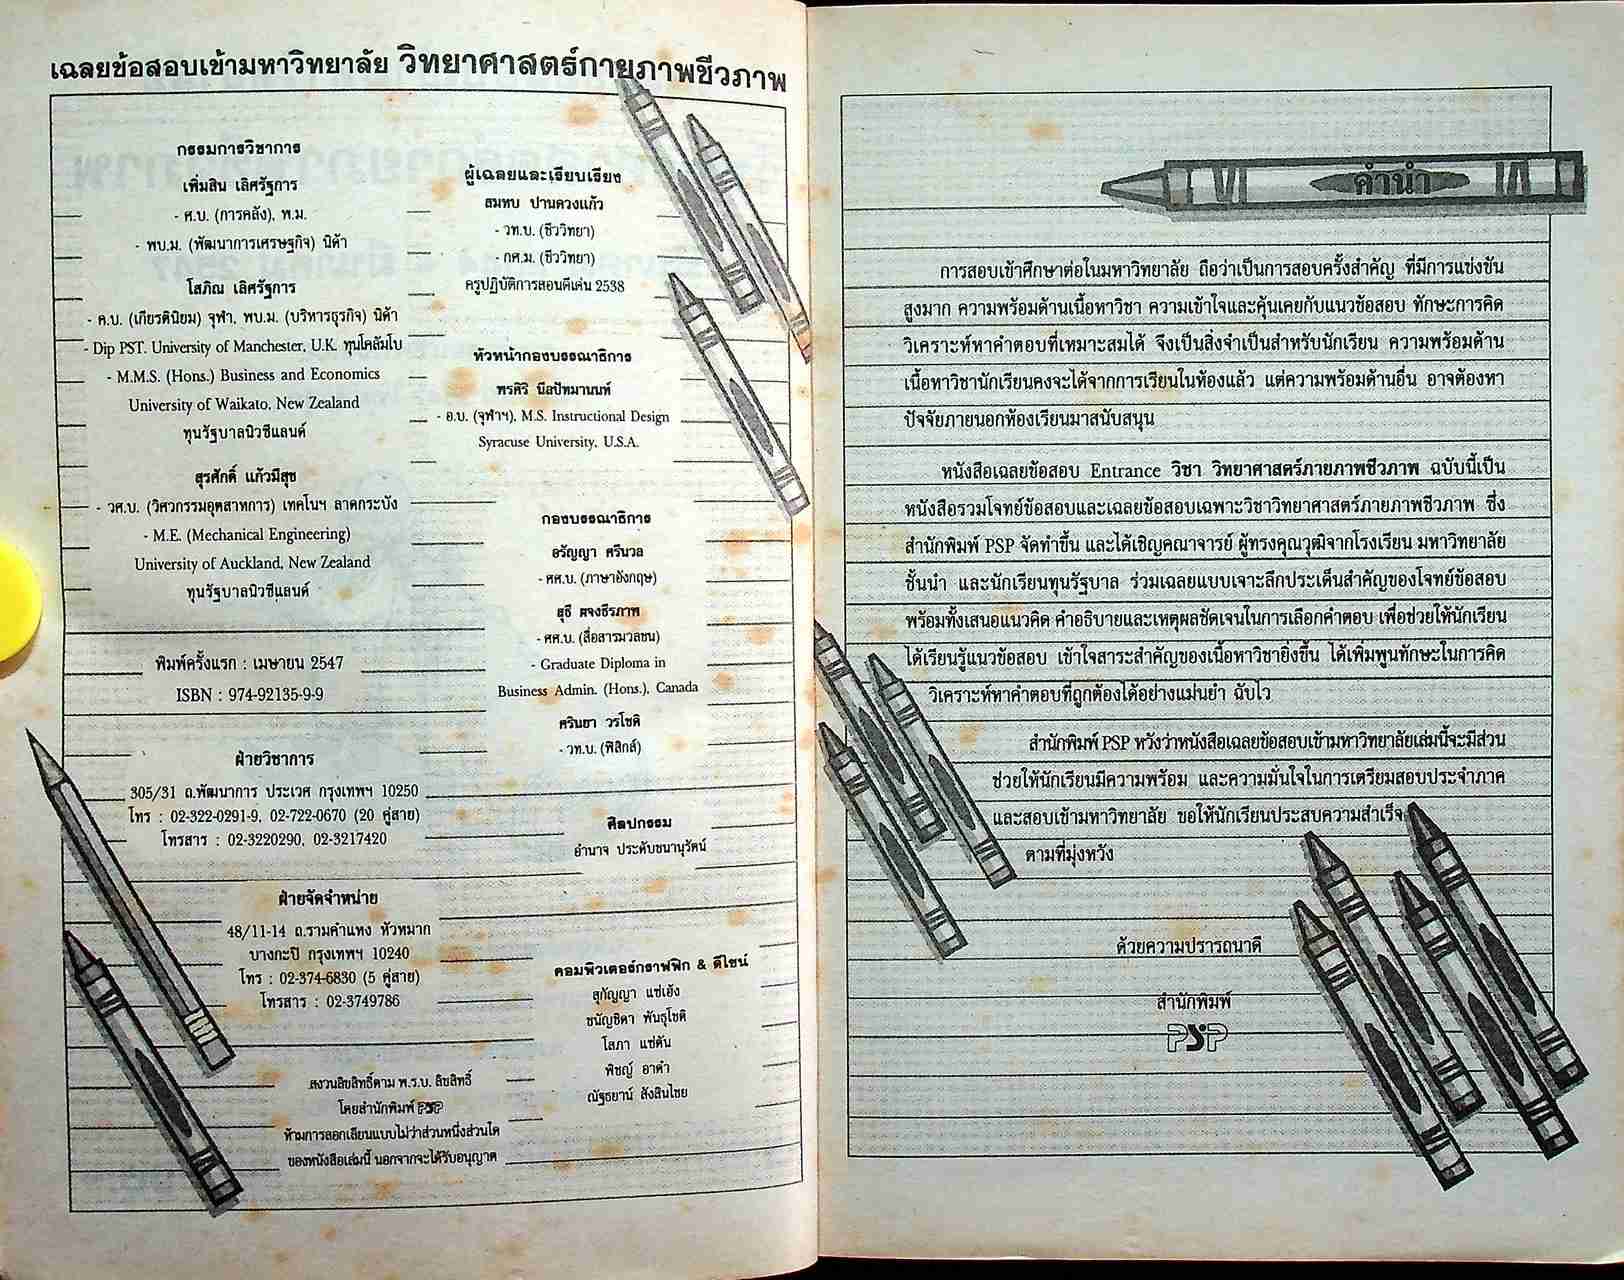 เฉลยข้อสอบเข้ามหาวิทยาลัย วิทยาศาสตร์กายภาพชีวภาพ
กรรมการวิชาการ
เพิ่มสิน เลิศรัฐการ
- ศ.บ. (การคลัง), พ.ม.
- พบ.ม. (พัฒนาการเศรษฐกิจ) นิด้า
โสภิณ เลิศรัฐการ
- ค.บ. (เกียรตินิยม) จุฬา, พบ.ม. (บริหารธุรกิจ) นิด้า
- Dip PST. University of Manchester, U.K. ทุนโคลัมโบ
- M.M.S. (Hons.) Business and Economics
University of Waikato, New Zealand
ทุนรัฐบาลนิวซีแลนด์
สุรศักดิ์ แก้วมีสุข
- วศ.บ. (วิศวกรรมอุตสาหการ) เทคโนฯ ลาดกระบัง
- M.E. (Mechanical Engineering)
University of Auckland, New Zealand
ทุนรัฐบาลนิวซีแลนด์
พิมพ์ครั้งแรก : เมษายน 2547
ISBN : 974-92135-9-9
ฝ่ายวิชาการ
305/31 ถ.พัฒนาการ ประเวศ กรุงเทพฯ 10250
โทร : 02-322-0291-9, 02-722-0670 (20 คู่สาย)
โทรสาร : 02-3220290, 02-3217420
ฝ่ายจัดจำหน่าย
48/11-14 ถ.รามคำแหง หัวหมาก
บางกะปิ กรุงเทพฯ 10240
โทร : 02-374-6830 (5 คู่สาย)
โทรสาร : 02-3749786
สงวนลิขสิทธิ์ตาม พ.ร.บ. ลิขสิทธิ์
โดยสำนักพิมพ์ PSP
ห้ามการลอกเลียนแบบไม่ว่าส่วนหนึ่งส่วนใด
ของหนังสือเล่มนี้ นอกจากจะได้รับอนุญาต
ผู้เฉลยและเรียบเรียง
สมทบ ปานดวงแก้ว
- วท.บ. (ชีววิทยา)
- กศ.ม. (ชีววิทยา)
ครูปฏิบัติการสอนดีเด่น 2538
หัวหน้ากองบรรณาธิการ
พรศิริ นีลปัทมานนท์
- อ.บ. (จุฬาฯ), M.S. Instructional Design
Syracuse University, U.S.A.
กองบรรณาธิการ
อรัญญา ศรีนวล
- ศศ.บ. (ภาษาอังกฤษ)
สุธี ผจงธีรภาพ
- ศศ.บ. (สื่อสารมวลชน)
- Graduate Diploma in
Business Admin. (Hons.), Canada
ศรินยา วรโชติ
- วท.บ. (ฟิสิกส์)
ศิลปกรรม
อำนาจ ประดับชนานุรัตน์
คอมพิวเตอร์กราฟฟิก & ดีไซน์
สุกัญญา แซ่เฮ้ง
ชนัญชิดา พันธุโชติ
โสภา แซ่ตัน
พิชญ์ อาดำ
ณัฐธยาน์ สังสินไชย
คำนำ
การสอบเข้าศึกษาต่อในมหาวิทยาลัย ถือว่าเป็นการสอบครั้งสำคัญ ที่มีการแข่งขัน
สูงมาก ความพร้อมด้านเนื้อหาวิชา ความเข้าใจและคุ้นเคยกับแนวข้อสอบ ทักษะการคิด
วิเคราะห์หาคำตอบที่เหมาะสมได้ จึงเป็นสิ่งจำเป็นสำหรับนักเรียน ความพร้อมด้าน
เนื้อหาวิชานักเรียนคงจะได้จากการเรียนในห้องแล้ว แต่ความพร้อมด้านอื่น อาจต้องหา
ปัจจัยภายนอกห้องเรียนมาสนับสนุน
หนังสือเฉลยข้อสอบ Entrance วิชา วิทยาศาสตร์กายภาพชีวภาพ ฉบับนี้เป็น
หนังสือรวมโจทย์ข้อสอบและเฉลยข้อสอบเฉพาะวิชาวิทยาศาสตร์กายภาพชีวภาพ ซึ่ง
สำนักพิมพ์ PSP จัดทำขึ้น และได้เชิญคณาจารย์ ผู้ทรงคุณวุฒิจากโรงเรียน มหาวิทยาลัย
ชั้นนำ และนักเรียนทุนรัฐบาล ร่วมเฉลยแบบเจาะลึกประเด็นสำคัญของโจทย์ข้อสอบ
พร้อมทั้งเสนอแนวคิด คำอธิบายและเหตุผลชัดเจนในการเลือกคำตอบ เพื่อช่วยให้นักเรียน
ได้เรียนรู้แนวข้อสอบ เข้าใจสาระสำคัญของเนื้อหาวิชายิ่งขึ้น ได้เพิ่มพูนทักษะในการคิด
วิเคราะห์หาคำตอบที่ถูกต้องได้อย่างแม่นยำ ฉับไว
สำนักพิมพ์ PSP หวังว่าหนังสือเฉลยข้อสอบเข้ามหาวิทยาลัยเล่มนี้จะมีส่วน
ช่วยให้นักเรียนมีความพร้อม และความมั่นใจในการเตรียมสอบประจำภาค
และสอบเข้ามหาวิทยาลัย ขอให้นักเรียนประสบความสำเร็จ
ตามที่มุ่งหวัง
ด้วยความปรารถนาดี
สำนักพิมพ์
PSP